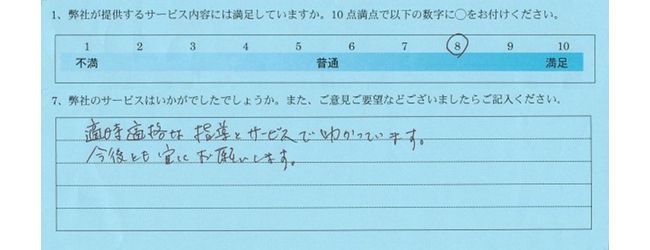 1、弊社が提供するサービス内容には満足していますか。10点満点で以下の数字に○をお付けください。
1 2 3 4 5 6 7 8 9 10
不満 普通 満足
7、弊社のサービスはいかがでしたでしょうか。また、ご意見ご要望などございましたらご記入ください。
適時適格な指導とサービスで助かっています。
今後とも宜しくお願いします。